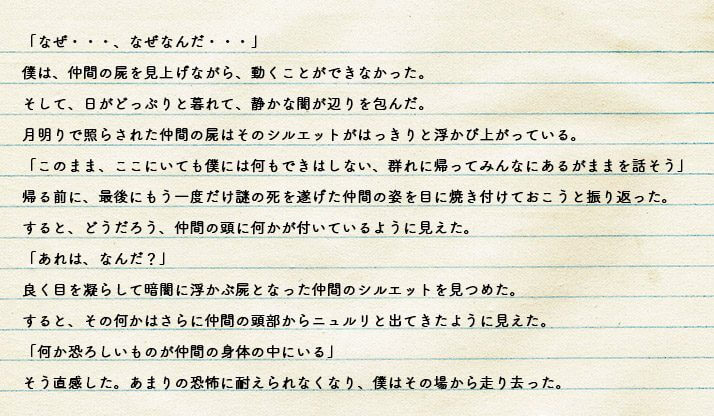 「なぜ・・・、なぜなんだ・・・」
僕は、仲間の屍を見上げながら、動くことができなかった。
そして、日がどっぷりと暮れて、静かな闇が辺りを包んだ。
月明りで照らされた仲間の屍はそのシルエットがはっきりと浮かび上がっている。
「このまま、ここにいても僕には何もできはしない、群れに帰ってみんなにあるがままを話そう」
帰る前に、最後にもう一度だけ謎の死を遂げた仲間の姿を目に焼き付けておこうと振り返った。
すると、どうだろう、仲間の頭に何かが付いているように見えた。
「あれは、なんだ？」
良く目を凝らして暗闇に浮かぶ屍となった仲間のシルエットを見つめた。
すると、その何かはさらに仲間の頭部からニュルリと出てきたように見えた。
「何か恐ろしいものが仲間の身体の中にいる」
そう直感した。あまりの恐怖に耐えられなくなり、僕はその場から走り去った。